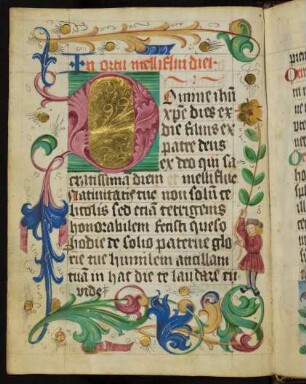 In ortu melliflui diei
Domine ihũ
xpe dies ex
die filius ex
patre deus
ex deo qui sa
cratissimã diem et mellifluę
natiuitatis tue non solũ ce
licolis sed etiã terrigenis
honorabilem fecisti queso
hodie de solio paterne glo
rie tue humilem ancillam
tuã in hac die te laudare